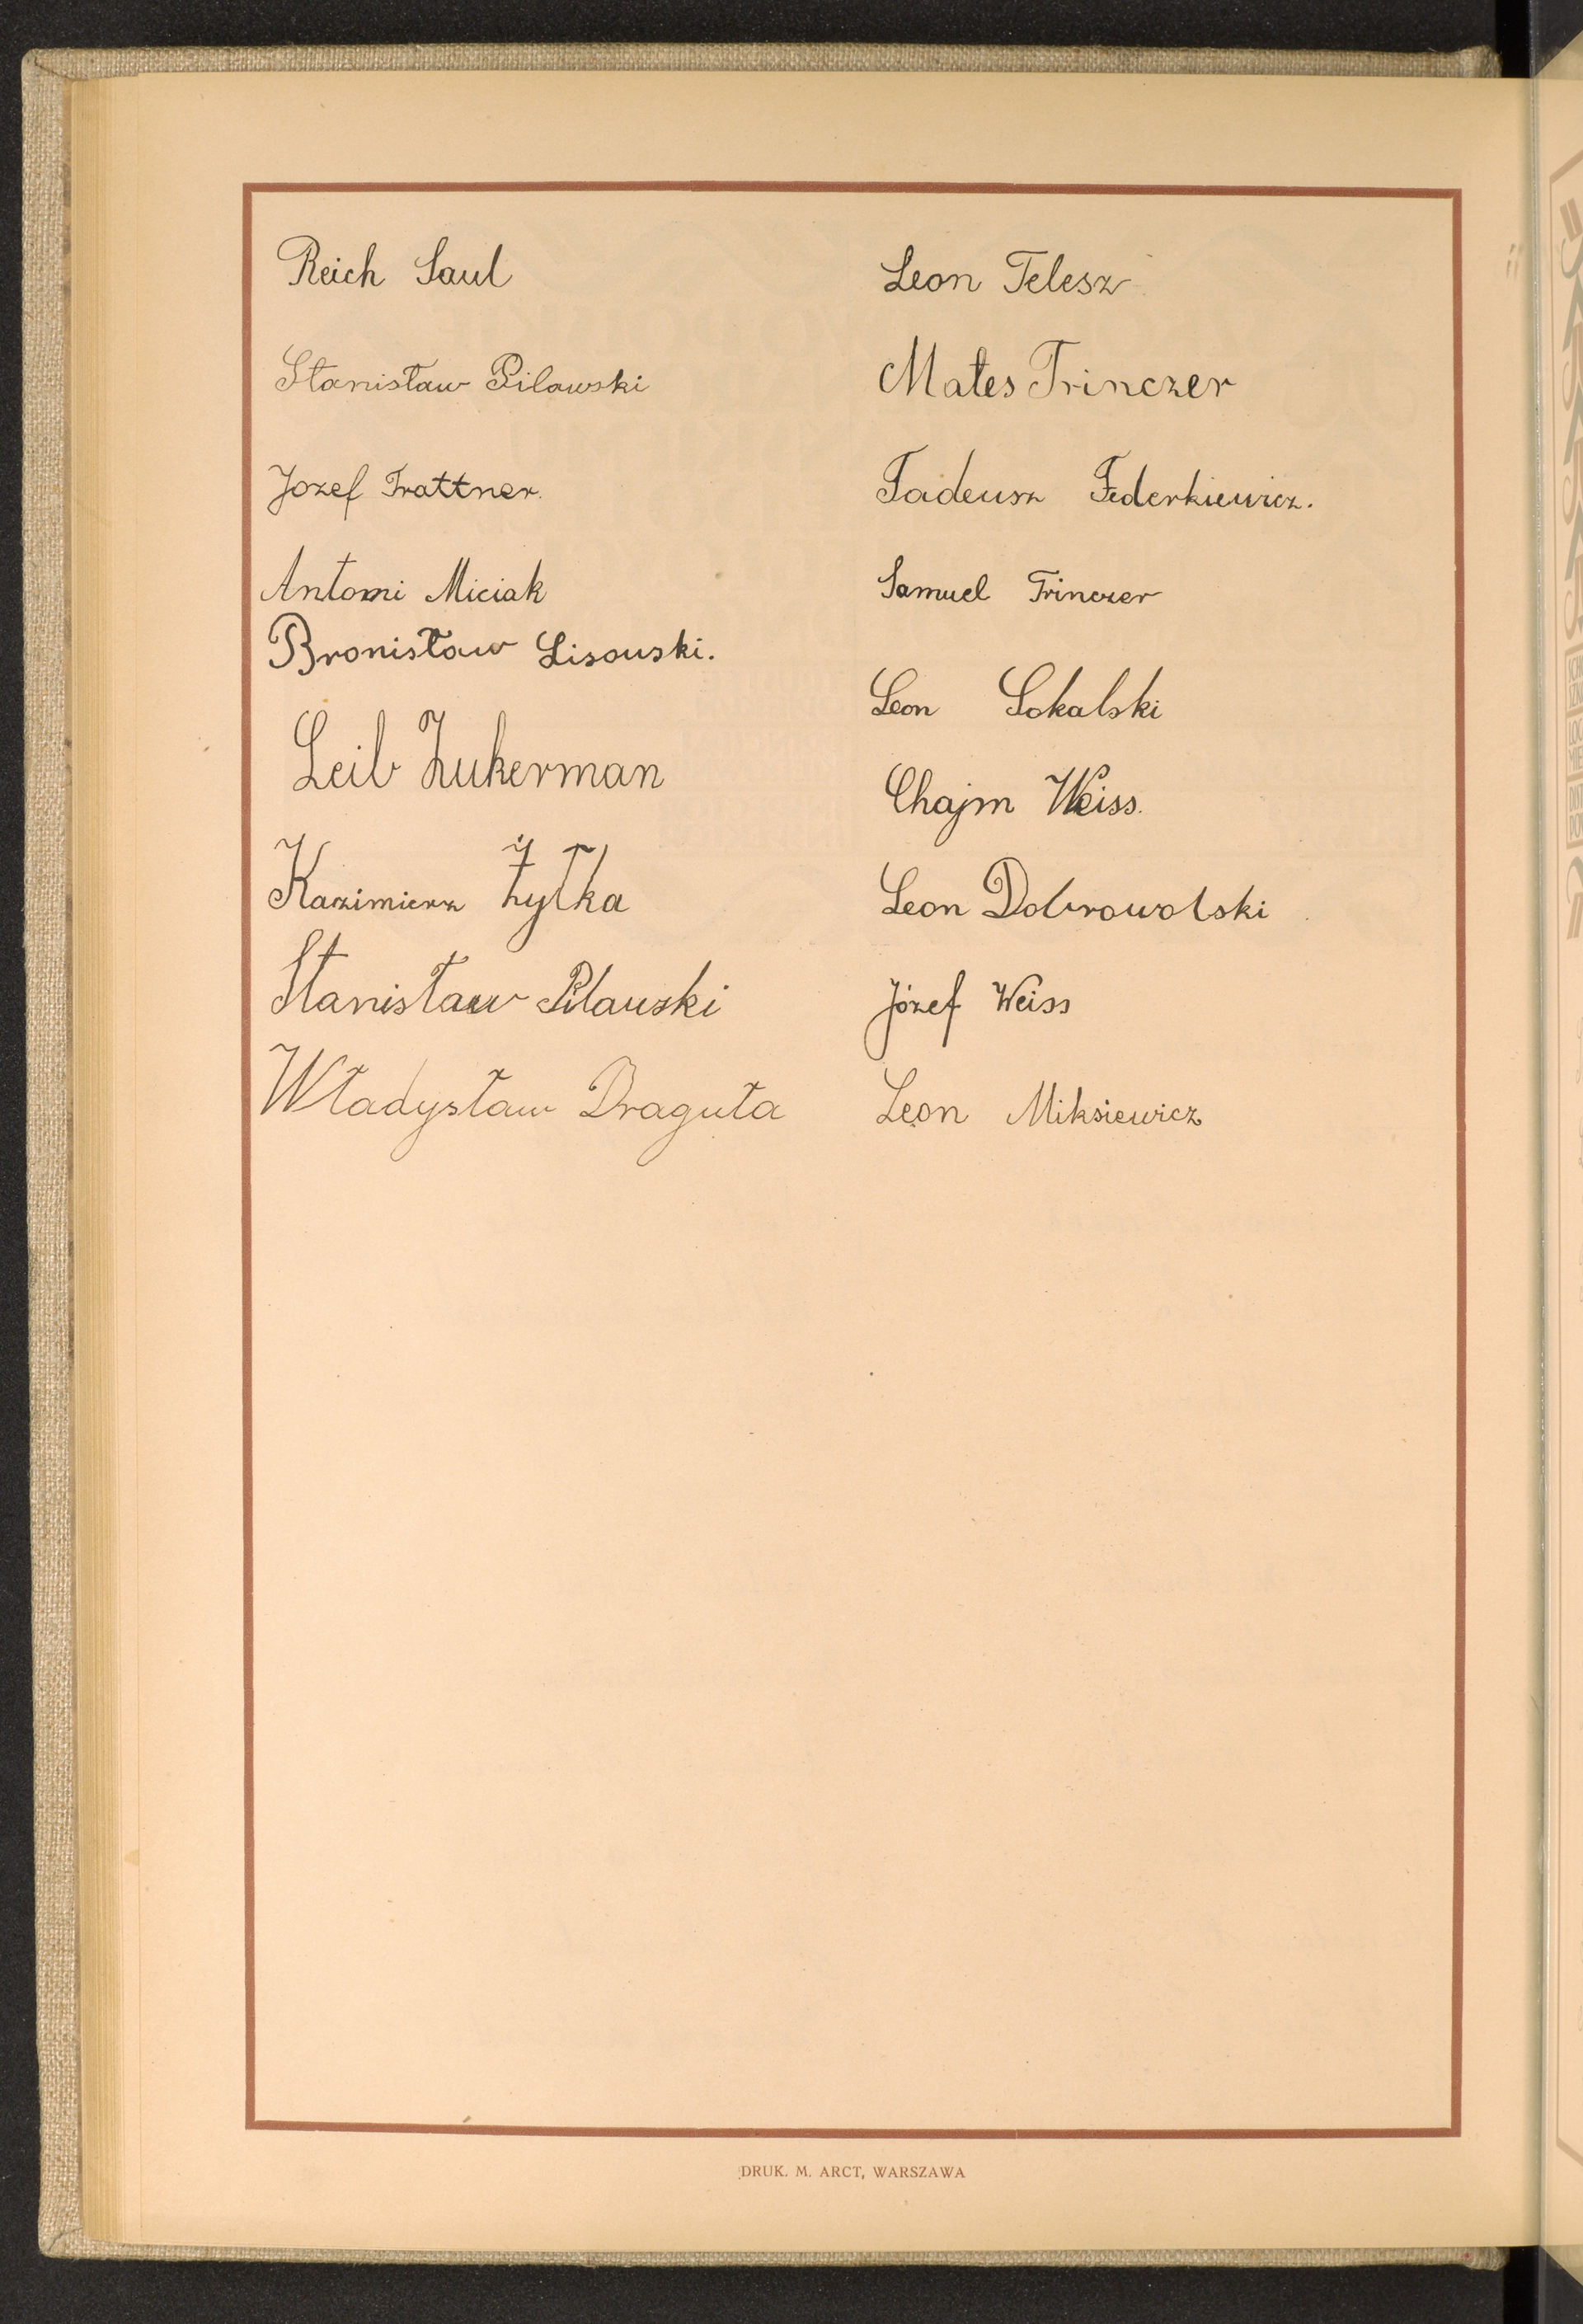 Reich Saul
Stanisław Pilawski
Jozef Trattner.
Antoni Miciak
Bronisław Lisowski.
Leib Zukerman
Kazimierz Żyłka
Stanisław Pilawski
Władysław Draguła
Leon Telesz
Mates Trinczer
Tadeusz Federkiewicz.
Samuel Trinczer
Leon Sokalski
Chajm Weiss.
Leon Dobrowolski
Józef Weiss
Leon Miksiewicz
DRUK. M. ARCT, WARSZAWA